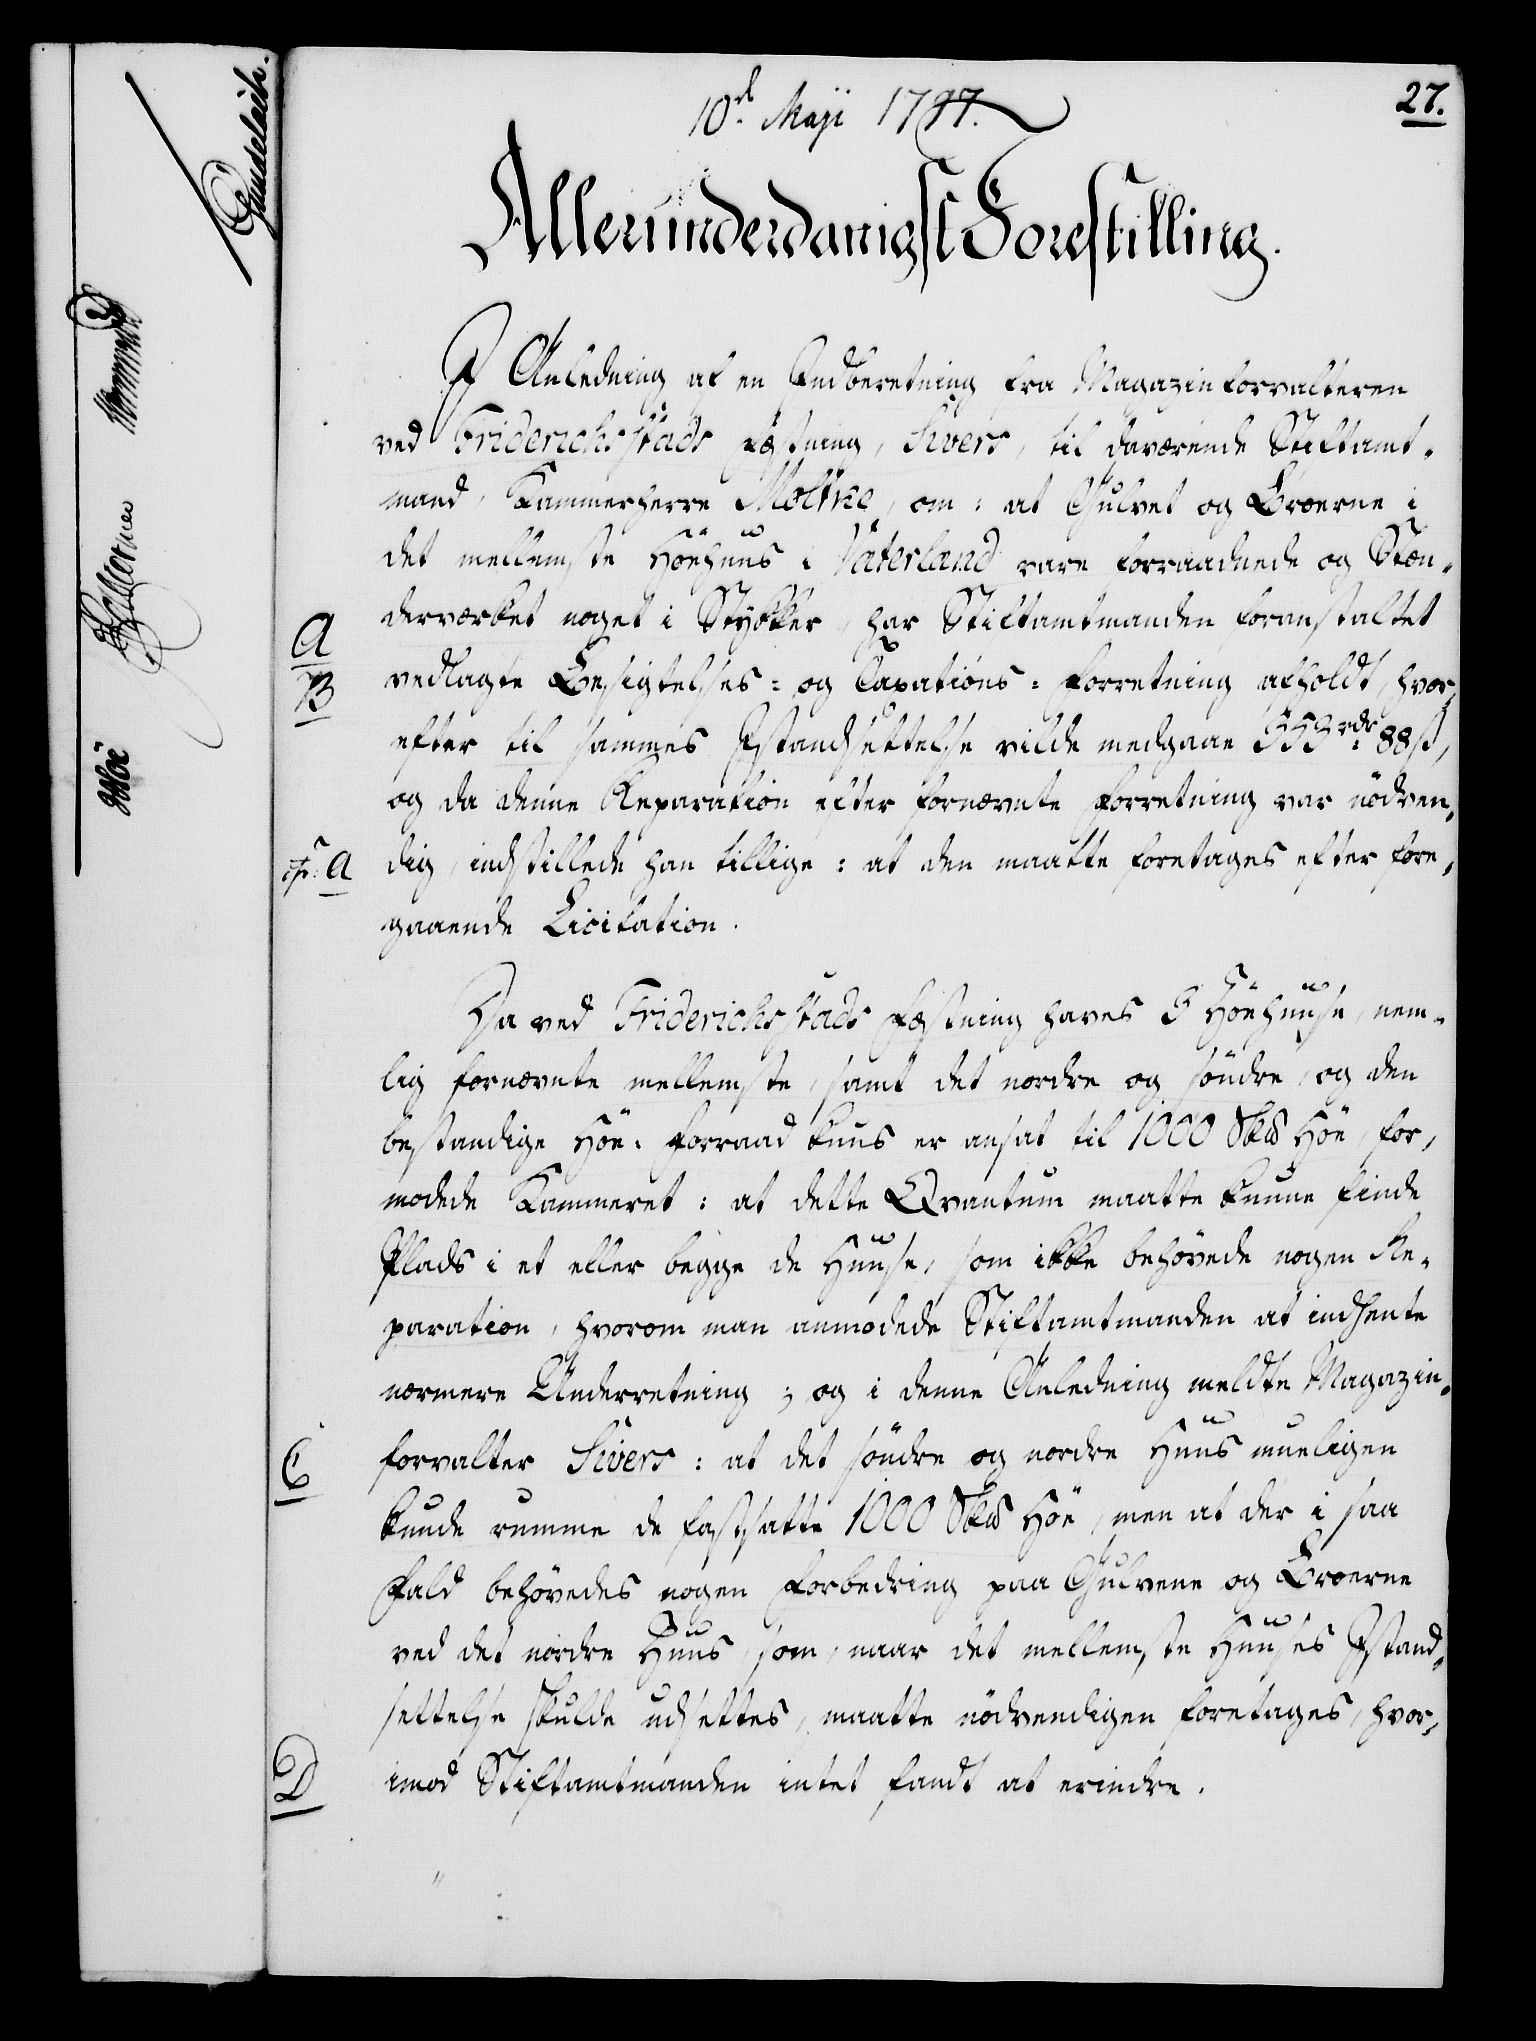 10d. Maji 1797.
27.
Allerunderdanigst Forestilling.
I Anledning af en Indberetning fra Magazinforvalteren
ved Friderichsstads Fæstning, Sivers, til daværende Stiftamt-
mand, Kammerherre Moltke, om: at Gulvet og Broerne i
det mellemste Höehuus i Vaterland vare forraadnede og Stæn-
derværket noget i Stykker, har Stiftamtmanden foranstaltet
A
B
vedlagte Besigtelses- og Taxations-Forretning afholdt, hvor-
efter til sammes Istandsettelse vilde medgaae 553 rdr 88 ß,
og da denne Reparation efter fornævnte Forretning var nödven-
A
dig, indstillede han tillige: at den maatte foretages efter fore-
gaaende Licitation.
Da ved Friderichsstads Fæstning haves 3 Höehuuse, nem-
lig fornævnte mellemste, samt det nordre og söndre, og den
bestandige Höe-Forraad kuns er ansat til 1000 Sk℔ Höe, for-
modede Kammeret: at dette Qvantum maatte kunne finde
Plads i et eller begge de Huuse, som ikke behövede nogen Re-
paration, hvorom man anmodede Stiftamtmanden at indhente
nærmere Underretning; og i denne Anledning meldte Magazin-
C
forvalter Sivers: at det söndre og nordre Huus mueligen
kunde rumme de fastsatte 1000 Sk℔ Höe, men at der i saa
Fald behövedes nogen Forbedring paa Gulvene og Broerne
ved det nordre Huus, som, naar det mellemste Huuses Istand-
settelse skulde udsettes, maatte nödvendigen foretages, hvor-
D
imod Stiftamtmanden intet fandt at erindre.